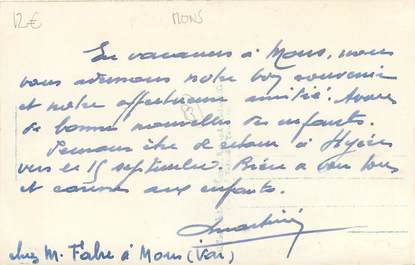 12€ MONS
En vacances à Mons, nous
vous adressons notre bon souvenir
et notre affectueuse amitié. Avons
de bonnes nouvelles des enfants.
Pensons être de retour à Hyères
vers le 15 septembre. Bien à vous tous
et caresses aux enfants.
chez M. Fabre à Mons (Var)